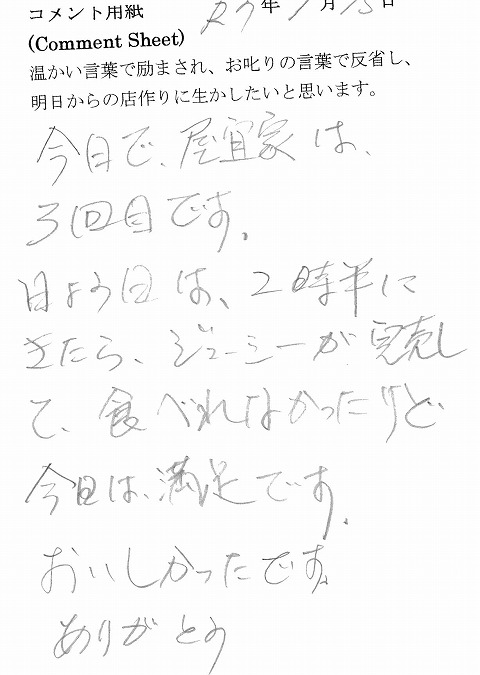 コメント用紙 R7年1月13日
(Comment Sheet)
温かい言葉で励まされ、お叱りの言葉で反省し、
明日からの店作りに生かしたいと思います。
今日で、屋宜家は、
3回目です。
日よう日は、2時半に
きたら、ジューシーが完売し
て、食べれなかったけど
今日は、満足です。
おいしかったです。
ありがとう